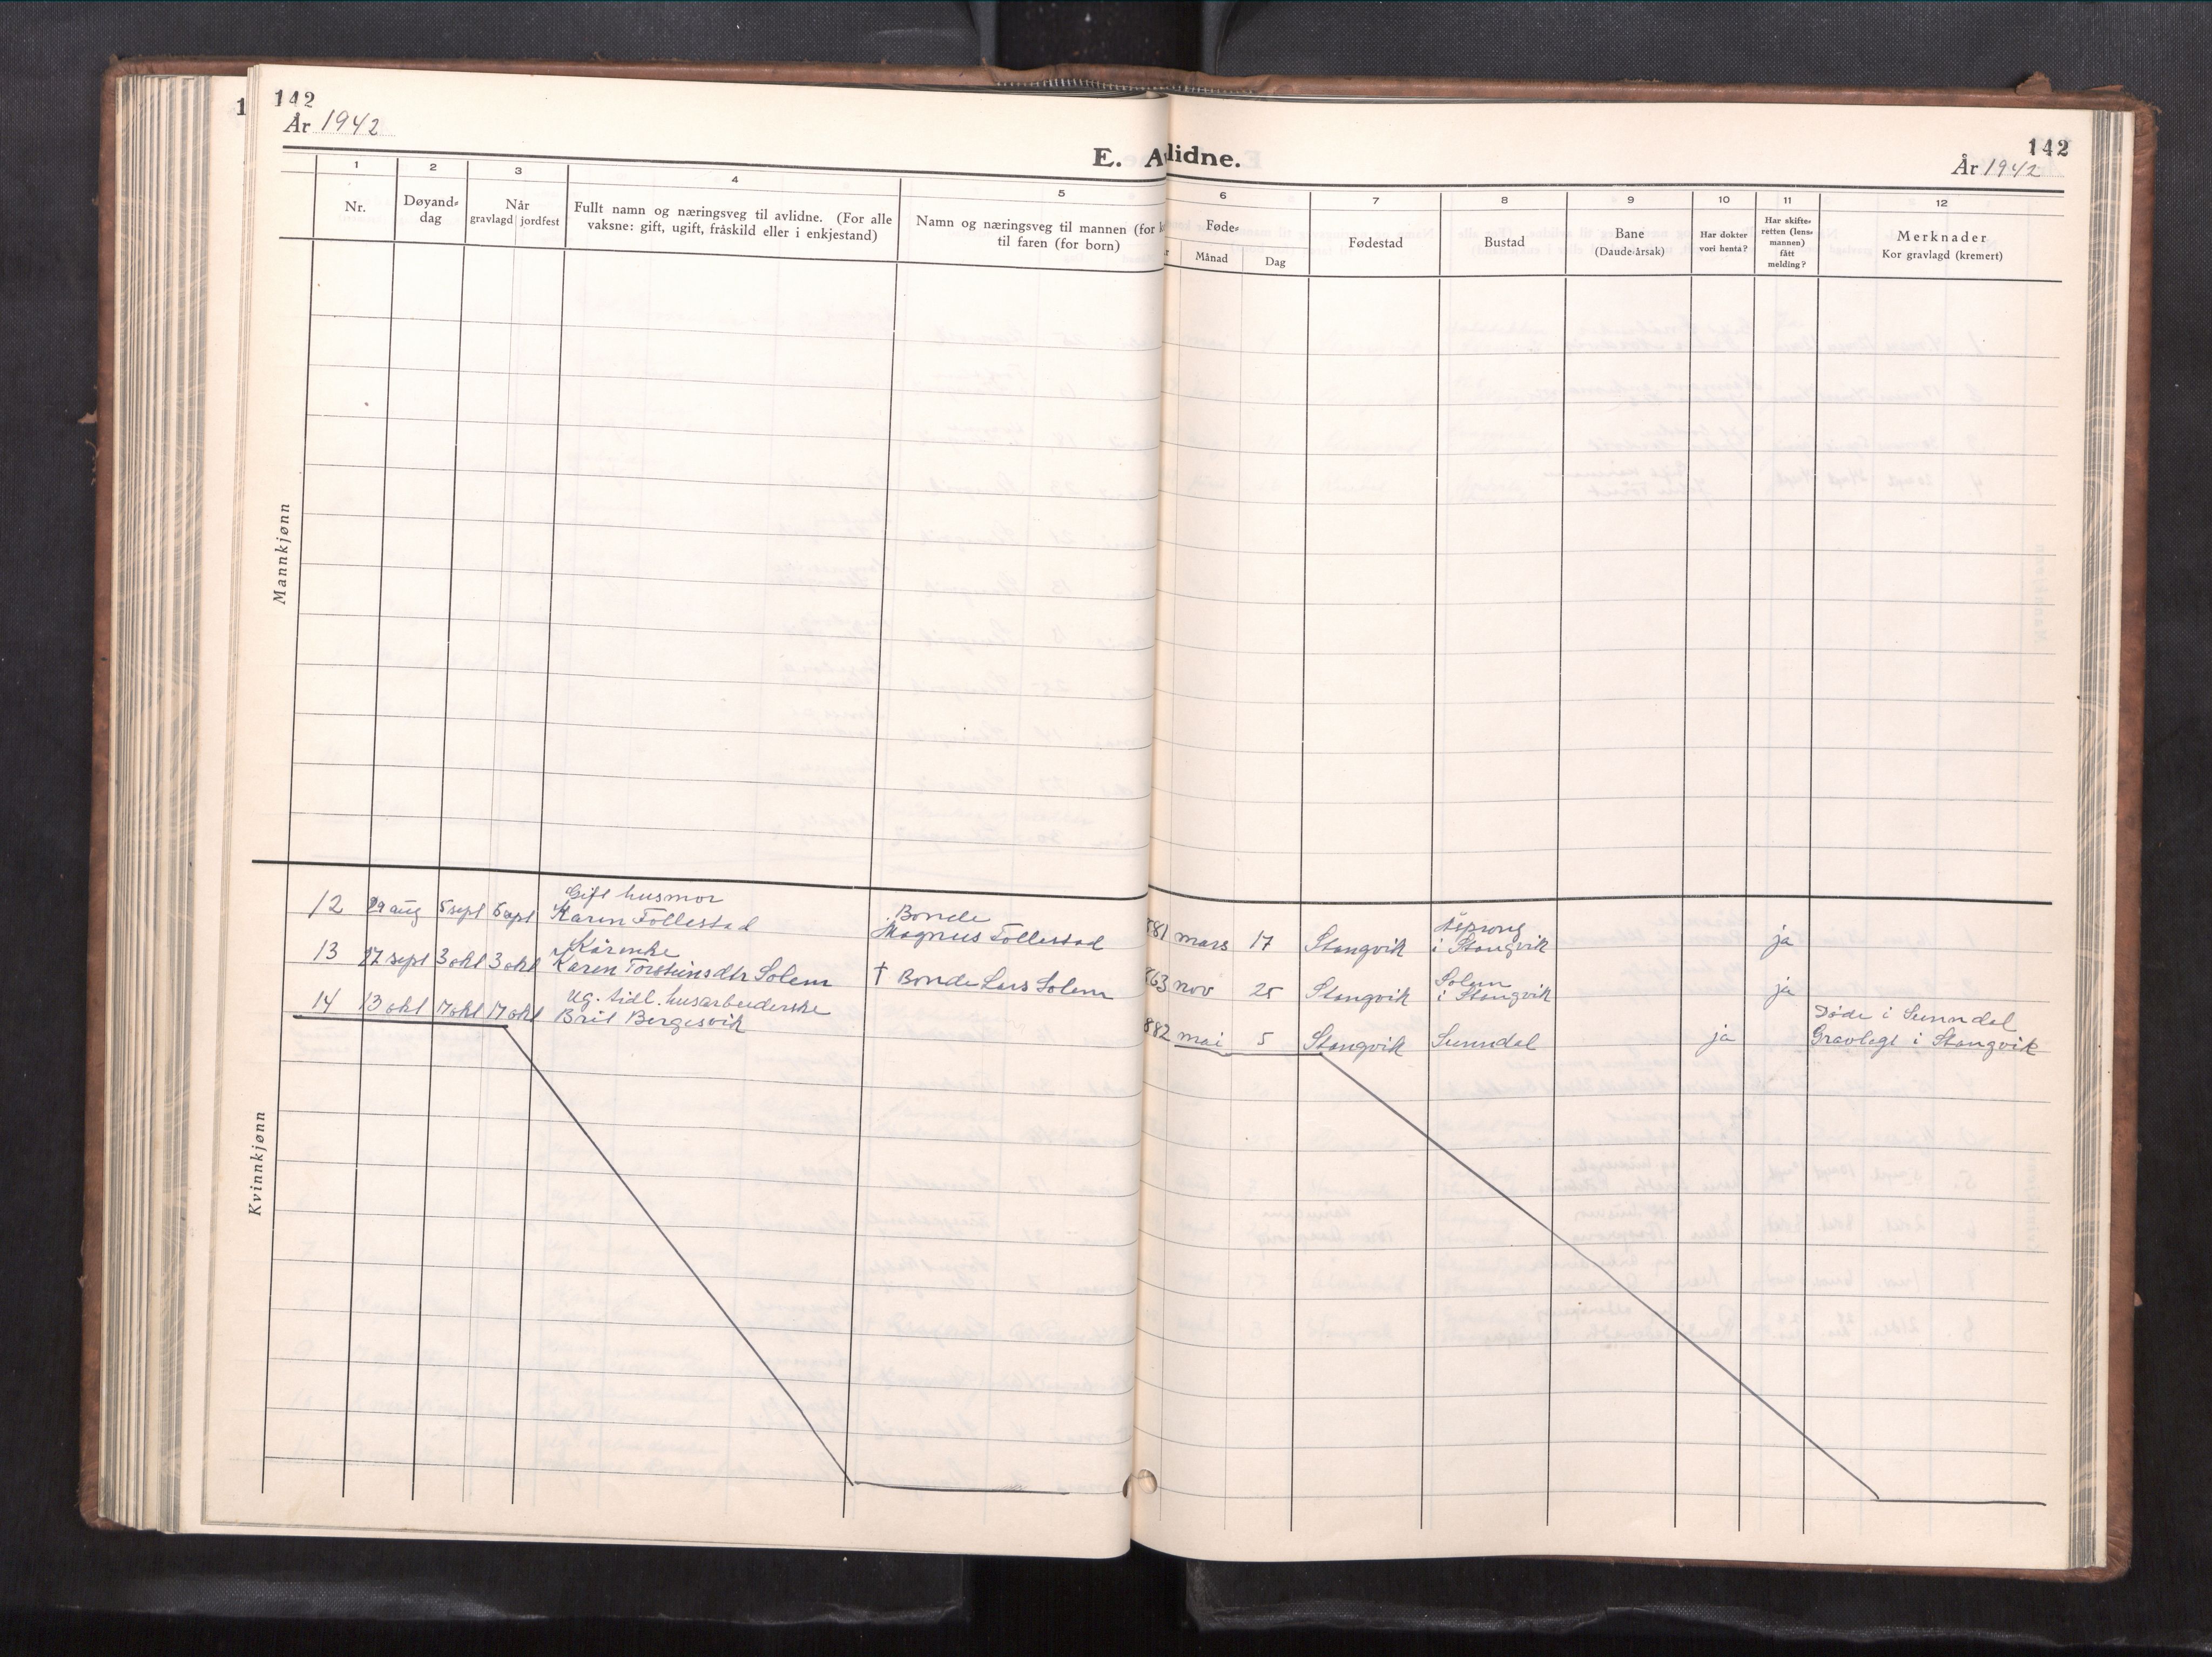 142
År 1942
E. Avlidne.
142
År 1942
1 2 3 4 5 6 7 8 9 10 11 12
Nr.
Døyand-
dag
Når
gravlagd jordfest
Fullt namn og næringsveg til avlidne. (For alle
vaksne: gift, ugift, fråskild eller i enkjestand)
Namn og næringsveg til mannen (for k
til faren (for born)
Føde-
Månad Dag
Fødestad
Bustad
Bane
(Daude-årsak)
Har dokter
vori henta?
Har skifte-
retten (lens-
mannen)
fått
melding?
Merknader
Kor gravlagd (kremert)
Mannkjønn
Kvinnkjønn
Gift husmor
12 29 aug 5 sept 5 sept Karen Follestad
Bonde
Magnus Follestad
881 mars 17 Stangvik
Åsprong
i Stangvik
ja
Kårenke
13 27 sept 3 okt 3 okt Karen Torsteinsdtr Solem
† Bonde Lars Solem
863 nov 25 Stangvik
Solem
i Stangvik
ja
Ug. tidl. husarbeiderske
14 13 okt 17 okt 17 okt Brit Bergesvik
882 mai 5 Stangvik Sunndal ja
Døde i Sunndal
Gravlagt i Stangvik